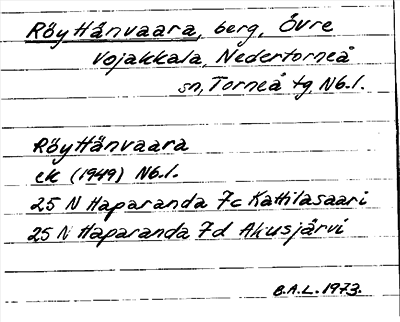 Röyttänvaara, berg, Övre
Vojakkala, Nedertorneå
sn, Torneå tg, Nb.l.
Röyttänvaara
ek (1949) Nb.l.
25 N Haparanda 7c Kattilasaari
25 N Haparanda 7d Akusjärvi
B.A.L. 1973.